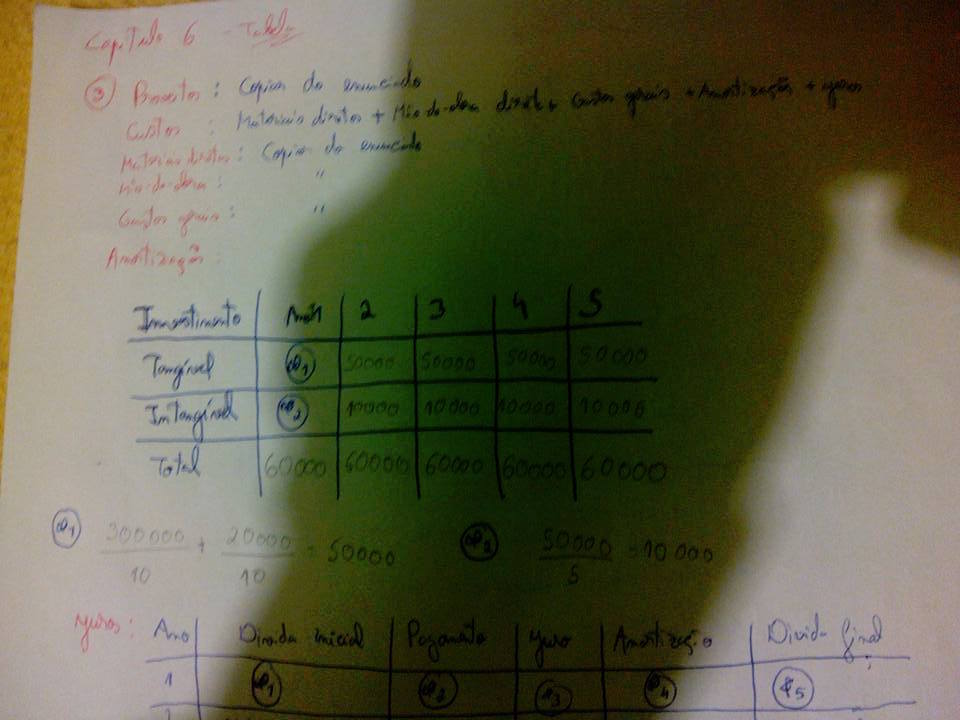 Capítulo 6 - Tabela
3 Proveitos: Copiar do enunciado
Custos: Materiais diretos + Mão-de-obra direta + Gastos gerais + Amortização + juros
Materiais diretos: Copiar do enunciado
Mão-de-obra: "
Gastos gerais: "
Amortização:
Investimento Ano 1 2 3 4 5
Tangível 1 50000 50000 50000 50000
Intangível 2 10000 10000 10000 10000
Total 60000 60000 60000 60000 60000
1 300000/10 + 20000/10 = 50000 50000/5 = 10 000
Juros: Ano Divida inicial Pagamento Juro Amortização Divida final
1 1 2 3 4 5